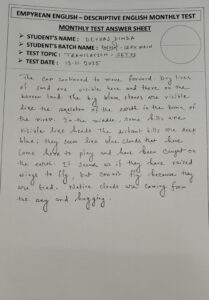 EMPYREAN ENGLISH – DESCRIPTIVE ENGLISH MONTHLY TEST
MONTHLY TEST ANSWER SHEET
➤ STUDENT'S NAME :
➤ STUDENT'S BATCH NAME :
➤ TEST TOPIC : TRANSLATION -
➤ TEST DATE :
The car continued to move forward. Big lines
of sand are visible here and there on the
barren land. The big blue stones are visible
like the skeleton of the earth in the bank of
the river. In the middle, some hills are
visible like heads. The distant hills are dark
blue; they seem like blue clouds that have
come here to play and have been caught on
the earth. It seems as if they have raised
wings to fly, but cannot fly because they
are tied. Native clouds are coming from
the sky and hugging.